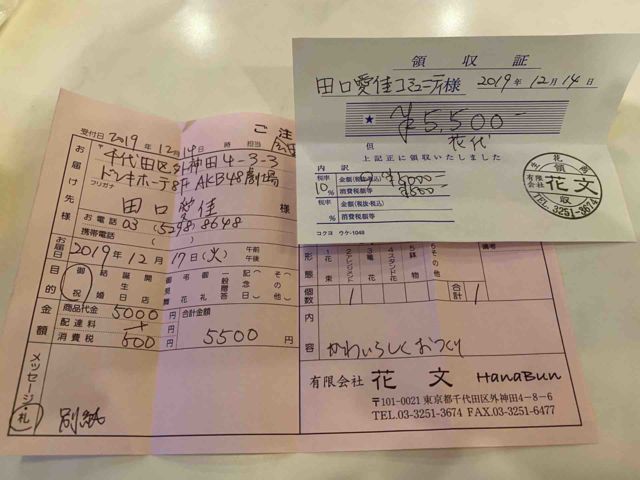 領収証
田口愛佳コミュニティ様 2019年12月14日
★ ¥5,500-
但 花代
上記正に領収いたしました
内訳
税率 10% 金額(税抜・税込) ¥5000-
消費税額等 ¥500
税率 % 金額(税抜・税込)
消費税額等
コクヨ ウケ-1048
生花
有限会社 花文
領収
TEL.3251-3674
ご注
受付日 2019年12月14日 時 担当
お届け先様
〒
千代田区外神田4-3-3
ドンキホーテ8F AKB48劇場
フリガナ
田口愛佳 様
お電話 03 (5298) 8648
携帯電話 ( )
お届日 2019年12月17日(火) 午前 午後
目的 御祝 結婚 誕生日 開店 御見舞 弔花 御礼 一般贈答 記念日 (その他)
形態 1花束 2アレンジメント 3籠花 4スタンド花 5鉢物 その他 備考
個数 1 合計 1
金額 商品代金 5000円 合計金額
配達料 円
消費税 500円 5500円
内容 かわいらしくおつくり
メッセージ・札
別紙
有限会社 花文 HanaBun
〒101-0021 東京都千代田区外神田4-8-6
TEL.03-3251-3674 FAX.03-3251-6477